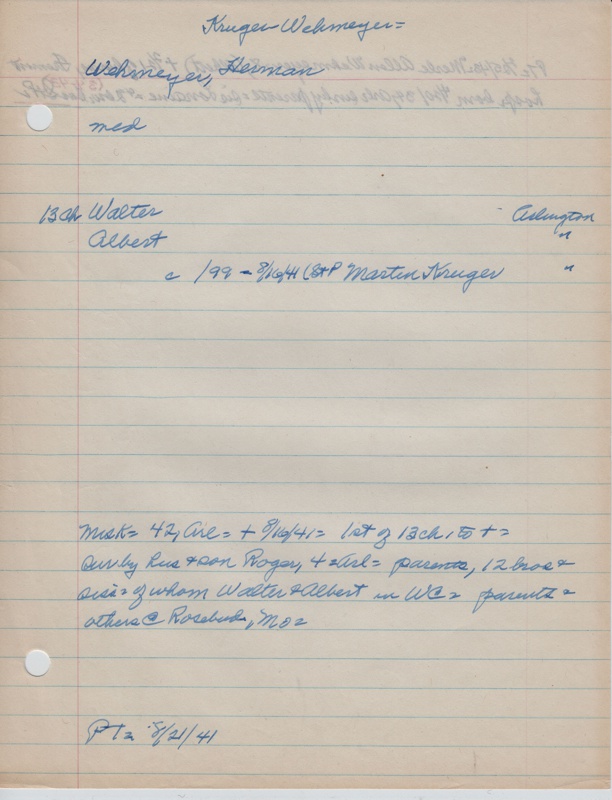 Kruger-Wehmeyer=
Wehrmeyer, Herman
med
13 ch Walter Arlington
Albert "
c /99 - 8/16/41 (St P Martin Kruger "
Mrs K= 42, Arl= + 8/16/41= 1st of 13 ch, to + =
sur by hus & son Roger, 4=Arl= parents, 12 bros &
sis= of whom Walter & Albert in WC= parents &
others @ Rosebud, Mo=
PT= 8/21/41